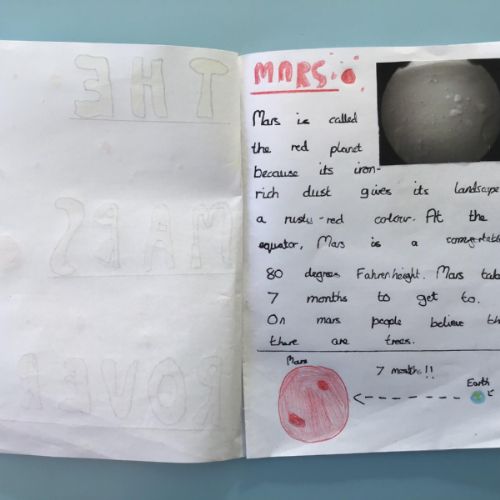 THE
MARS
ROVER
MARS
Mars is called
the red planet
because its iron-
rich dust gives its landscape
a rusty-red colour. At the
equator, Mars is a
80 degrees Fahrenheight. Mars
7 months to get to.
On mars people believe
there are trees.
Mars
7 months!!
Earth